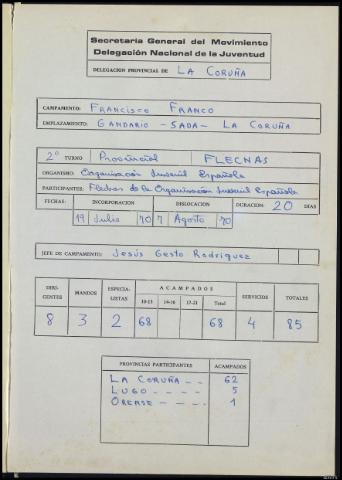 Secretaria General del Movimiento
Delegación Nacional de la Juventud
DELEGACION PROVINCIAL DE LA CORUÑA
CAMPAMENTO: FRANCISCO FRANCO
EMPLAZAMIENTO: GANDARIO - SADA - LA CORUÑA
2º TURNO Provincial FLECHAS
ORGANISMO: Organización Juvenil Española
PARTICIPANTES: Flechas de la Organización Juvenil Española
FECHAS: INCORPORACION DISLOCACION DURACION: 20 DIAS
19 Julio 70 7 Agosto 70
JEFE DE CAMPAMENTO: Jesús Gesto Rodriguez
DIRIGENTES MANDOS ESPECIALISTAS ACAMPADOS SERVICIOS TOTALES
10-13 14-16 17-21 Total
8 3 2 68 68 4 85
PROVINCIAS PARTICIPANTES ACAMPADOS
LA CORUÑA -- 62
LUGO ---- 5
ORENSE ---- 1